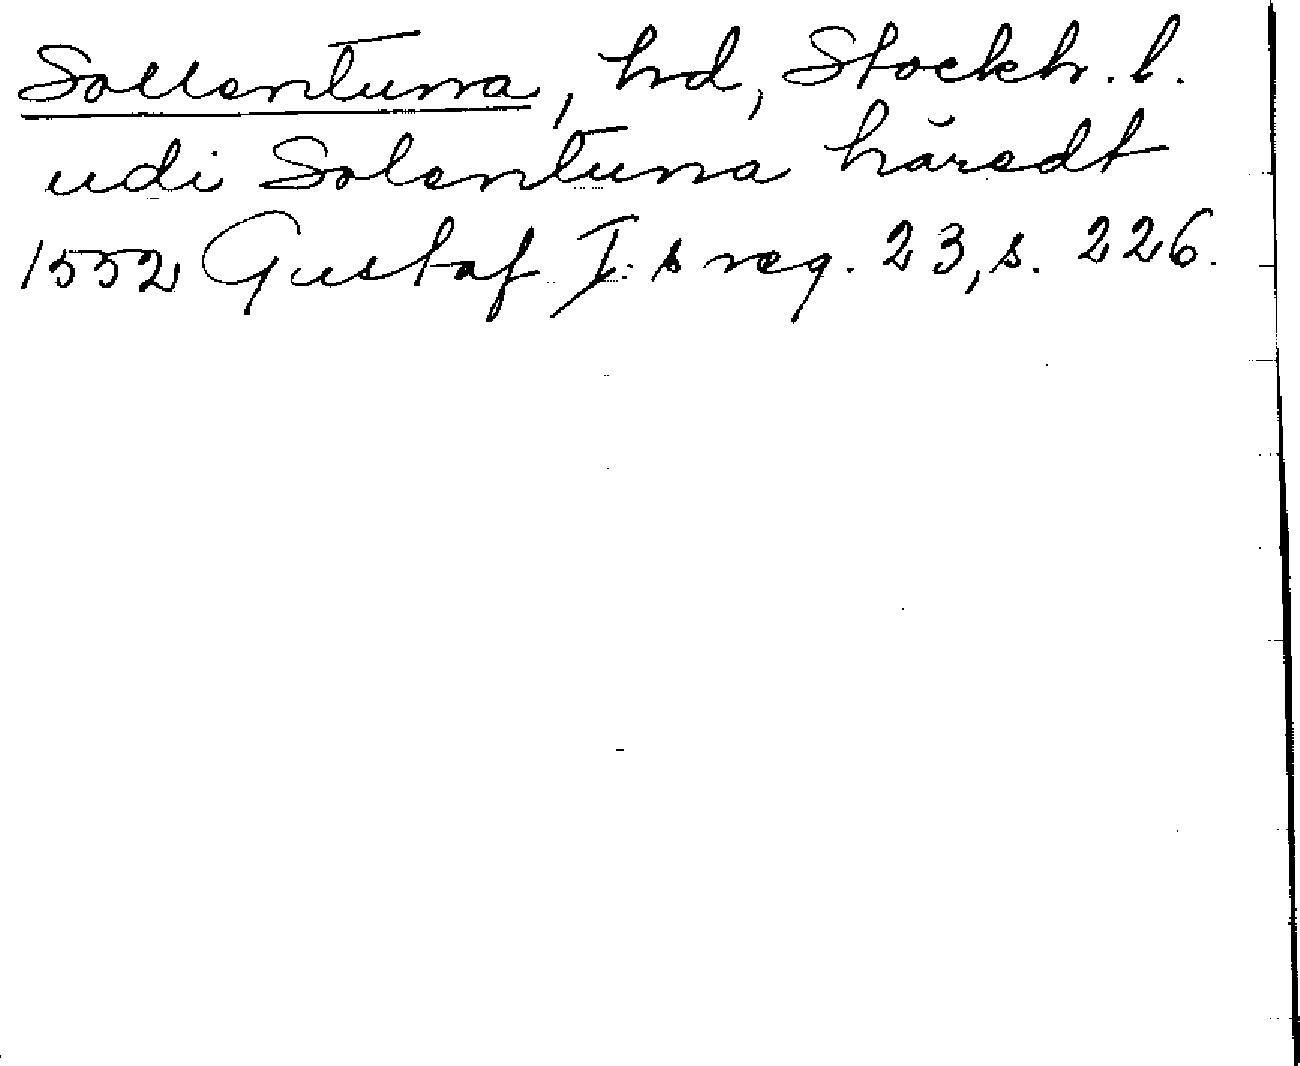 Sollentuna, hd, Stockh. l.
udi Solentuna häredt
1552 Gustaf I:s reg. 23, s. 226.